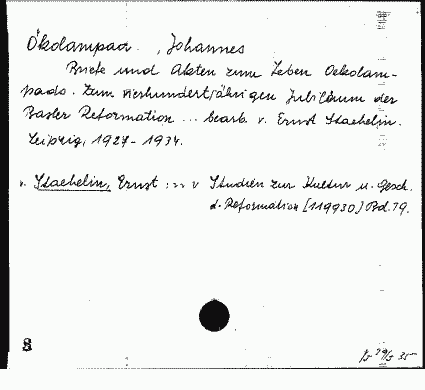 Ökolampad , Johannes
Briefe und Akten zum Leben Oekolam-
pads. Zum vierhundertjährigen Jubiläum der
Basler Reformation ... bearb. v. Ernst Staehelin.
Leipzig, 1927-1934.
v. Staehelin, Ernst : v Studien zur Kultur u. Gesch.
d. Reformation [119930] Bd. 19.
8